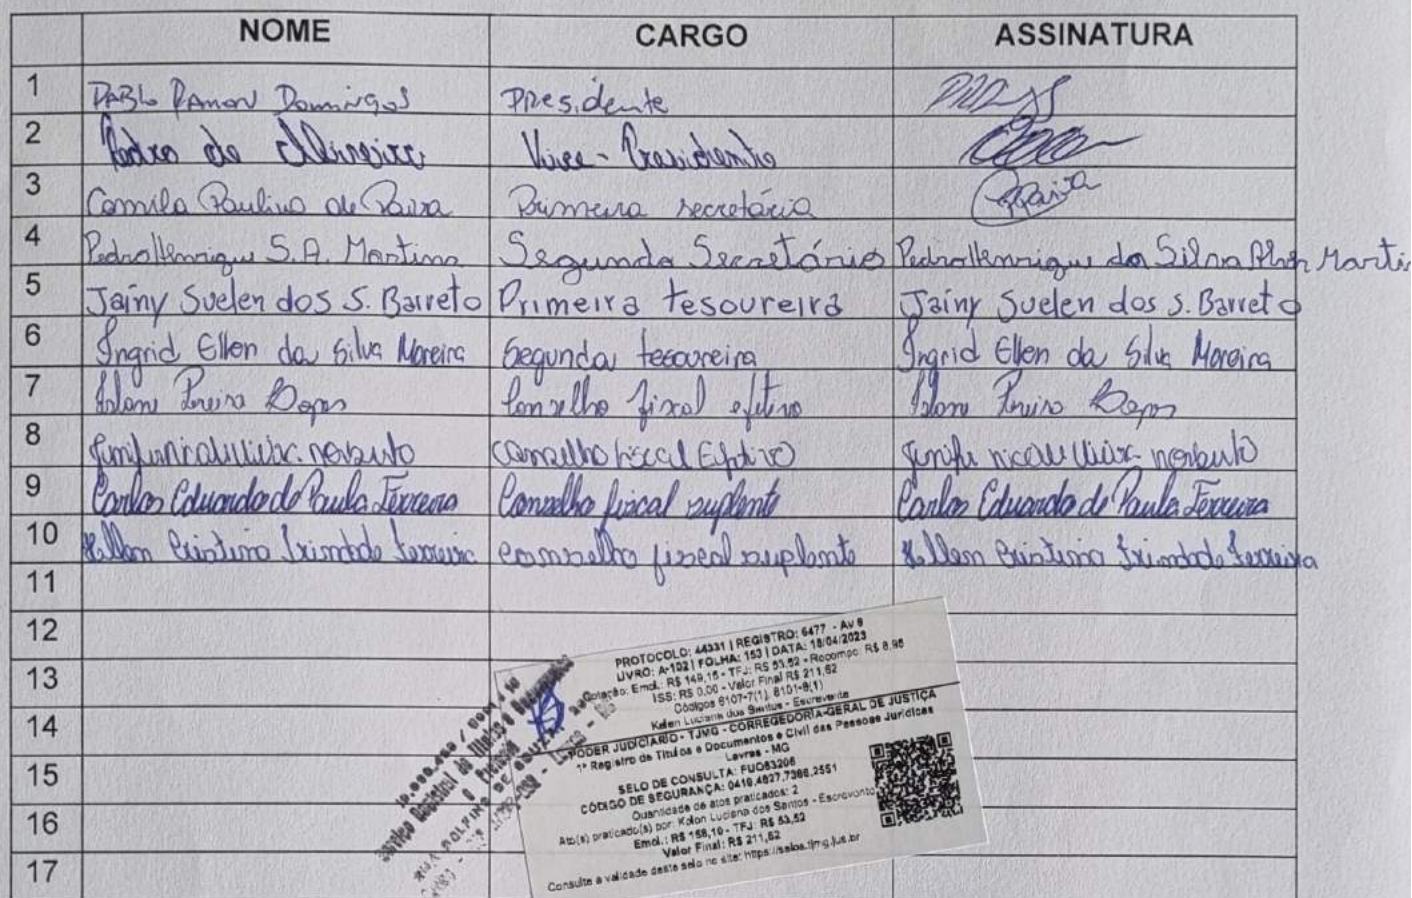 NOME CARGO ASSINATURA
1 PABLO RAMON Domingos Presidente
2 Pedro de Vice-Presidente
3 Camila Paulino de Paiva Primeira secretária Paiva
4 Pedro Henrique S.A. Martins Segundo Secretário Pedro Henrique da Silva Alves Martins
5 Jainy Suelen dos S. Barreto Primeira tesoureira Jainy Suelen dos S. Barreto
6 Ingrid Ellen da Silva Moreira Segunda tesoureira Ingrid Ellen da Silva Moreira
7 Pereira Conselho fiscal efetivo Pereira
8 norberto Conselho fiscal Efetivo norberto
9 Carlos Eduardo de Paula Ferreira Conselho fiscal suplente Carlos Eduardo de Paula Ferreira
10 Hellen Cristina Trindade Ferreira conselho fiscal suplente Hellen Cristina Trindade Ferreira
11
12
13
14
15
16
17
PROTOCOLO: 44331 | REGISTRO: 6477 - AV 8
LIVRO: A-102 | FOLHA: 153 | DATA: 18/04/2023
Cotação: Emol.: R$ 149,16 - TFJ: R$ 53,52 - Recompe: R$ 8,95
ISS: R$ 0,00 - Valor Final R$ 211,62
Códigos 6107-7(1), 8101-8(1)
Kelen Luciana dos Santos - Escrevente
PODER JUDICIÁRIO - TJMG - CORREGEDORIA-GERAL DE JUSTIÇA
1º Registro de Títulos e Documentos e Civil das Pessoas Jurídicas
Lavras - MG
SELO DE CONSULTA: FUO63206
CÓDIGO DE SEGURANÇA: 0419.4827.7386.2551
Quantidade de atos praticados: 2
Ato(s) praticado(s) por: Kelen Luciana dos Santos - Escrevente
Emol.: R$ 158,10 - TFJ: R$ 53,52
Valor Final: R$ 211,62
Consulte a validade deste selo no site: https://selos.tjmg.jus.br